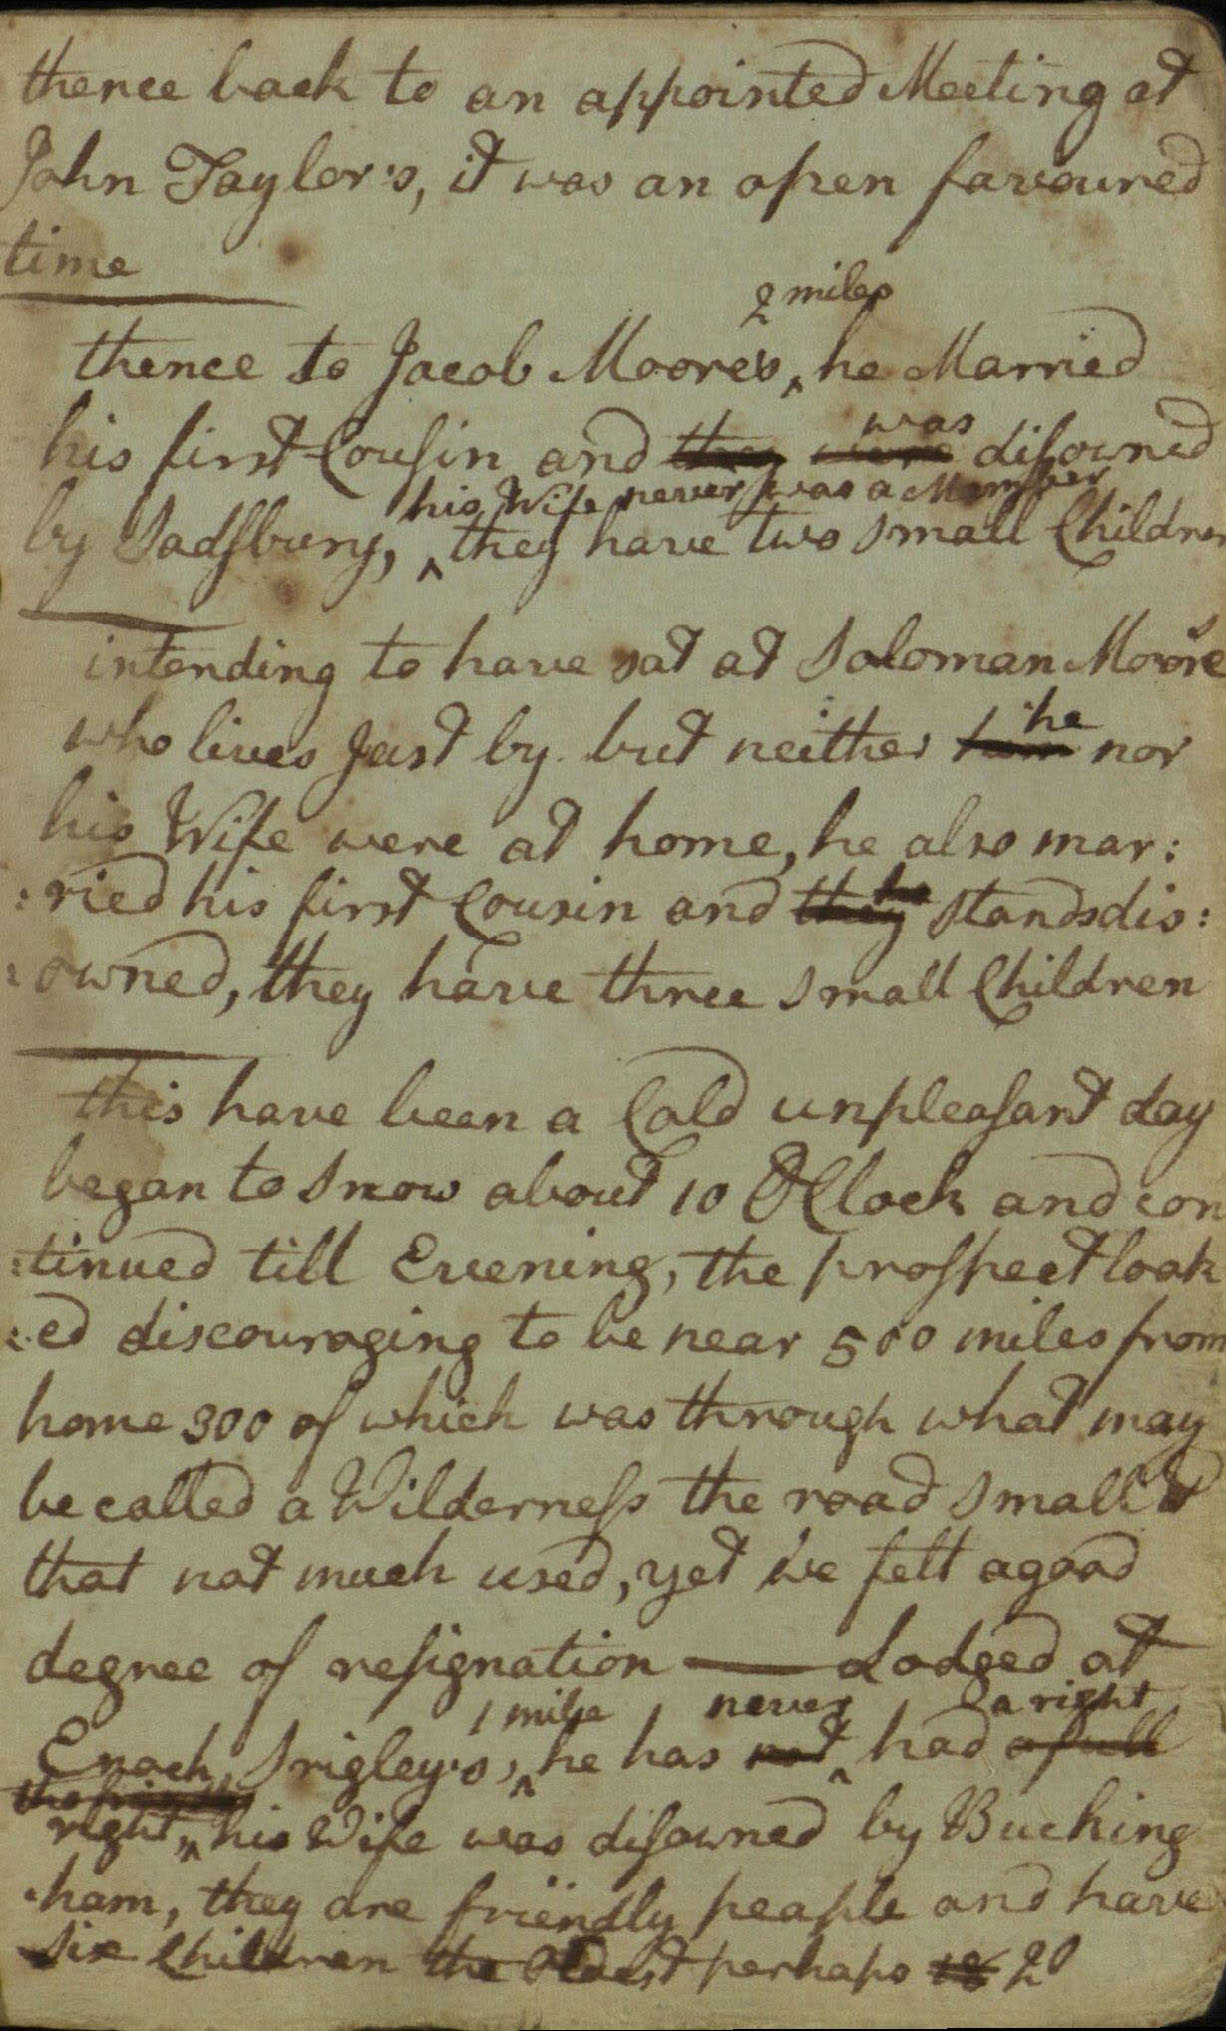 thence back to an appointed Meeting at
John Taylor's, it was an open favoured
time
2 miles
thence to Jacob Moore's, ^ he Married
his first Cousin and they were was disowned
his Wife never was a Member
by Sadsbury, ^ they have two small Children
intending to have sat at Soloman Moore's
who lives Just by but neither him he nor
his Wife were at home, he also mar:
:ried his first Cousin and they he stands dis:
:owned, they have three small Children
this have been a Cold unpleasant day
began to Snow about 10 OClock and con
:tinued till Evening, the prospect look
:ed discouraging to be near 500 miles from
home 300 of which was through what may
be called a Wilderness the road small &
that not much used, yet we felt a good
degree of resignation — Lodged at
1 mile never a right
Enoch Srigley's, ^ he has not ^ had a full
right, ^ his Wife was disowned by Bucking
:ham, they are friendly people and have
six Children the Oldest perhaps 18 20